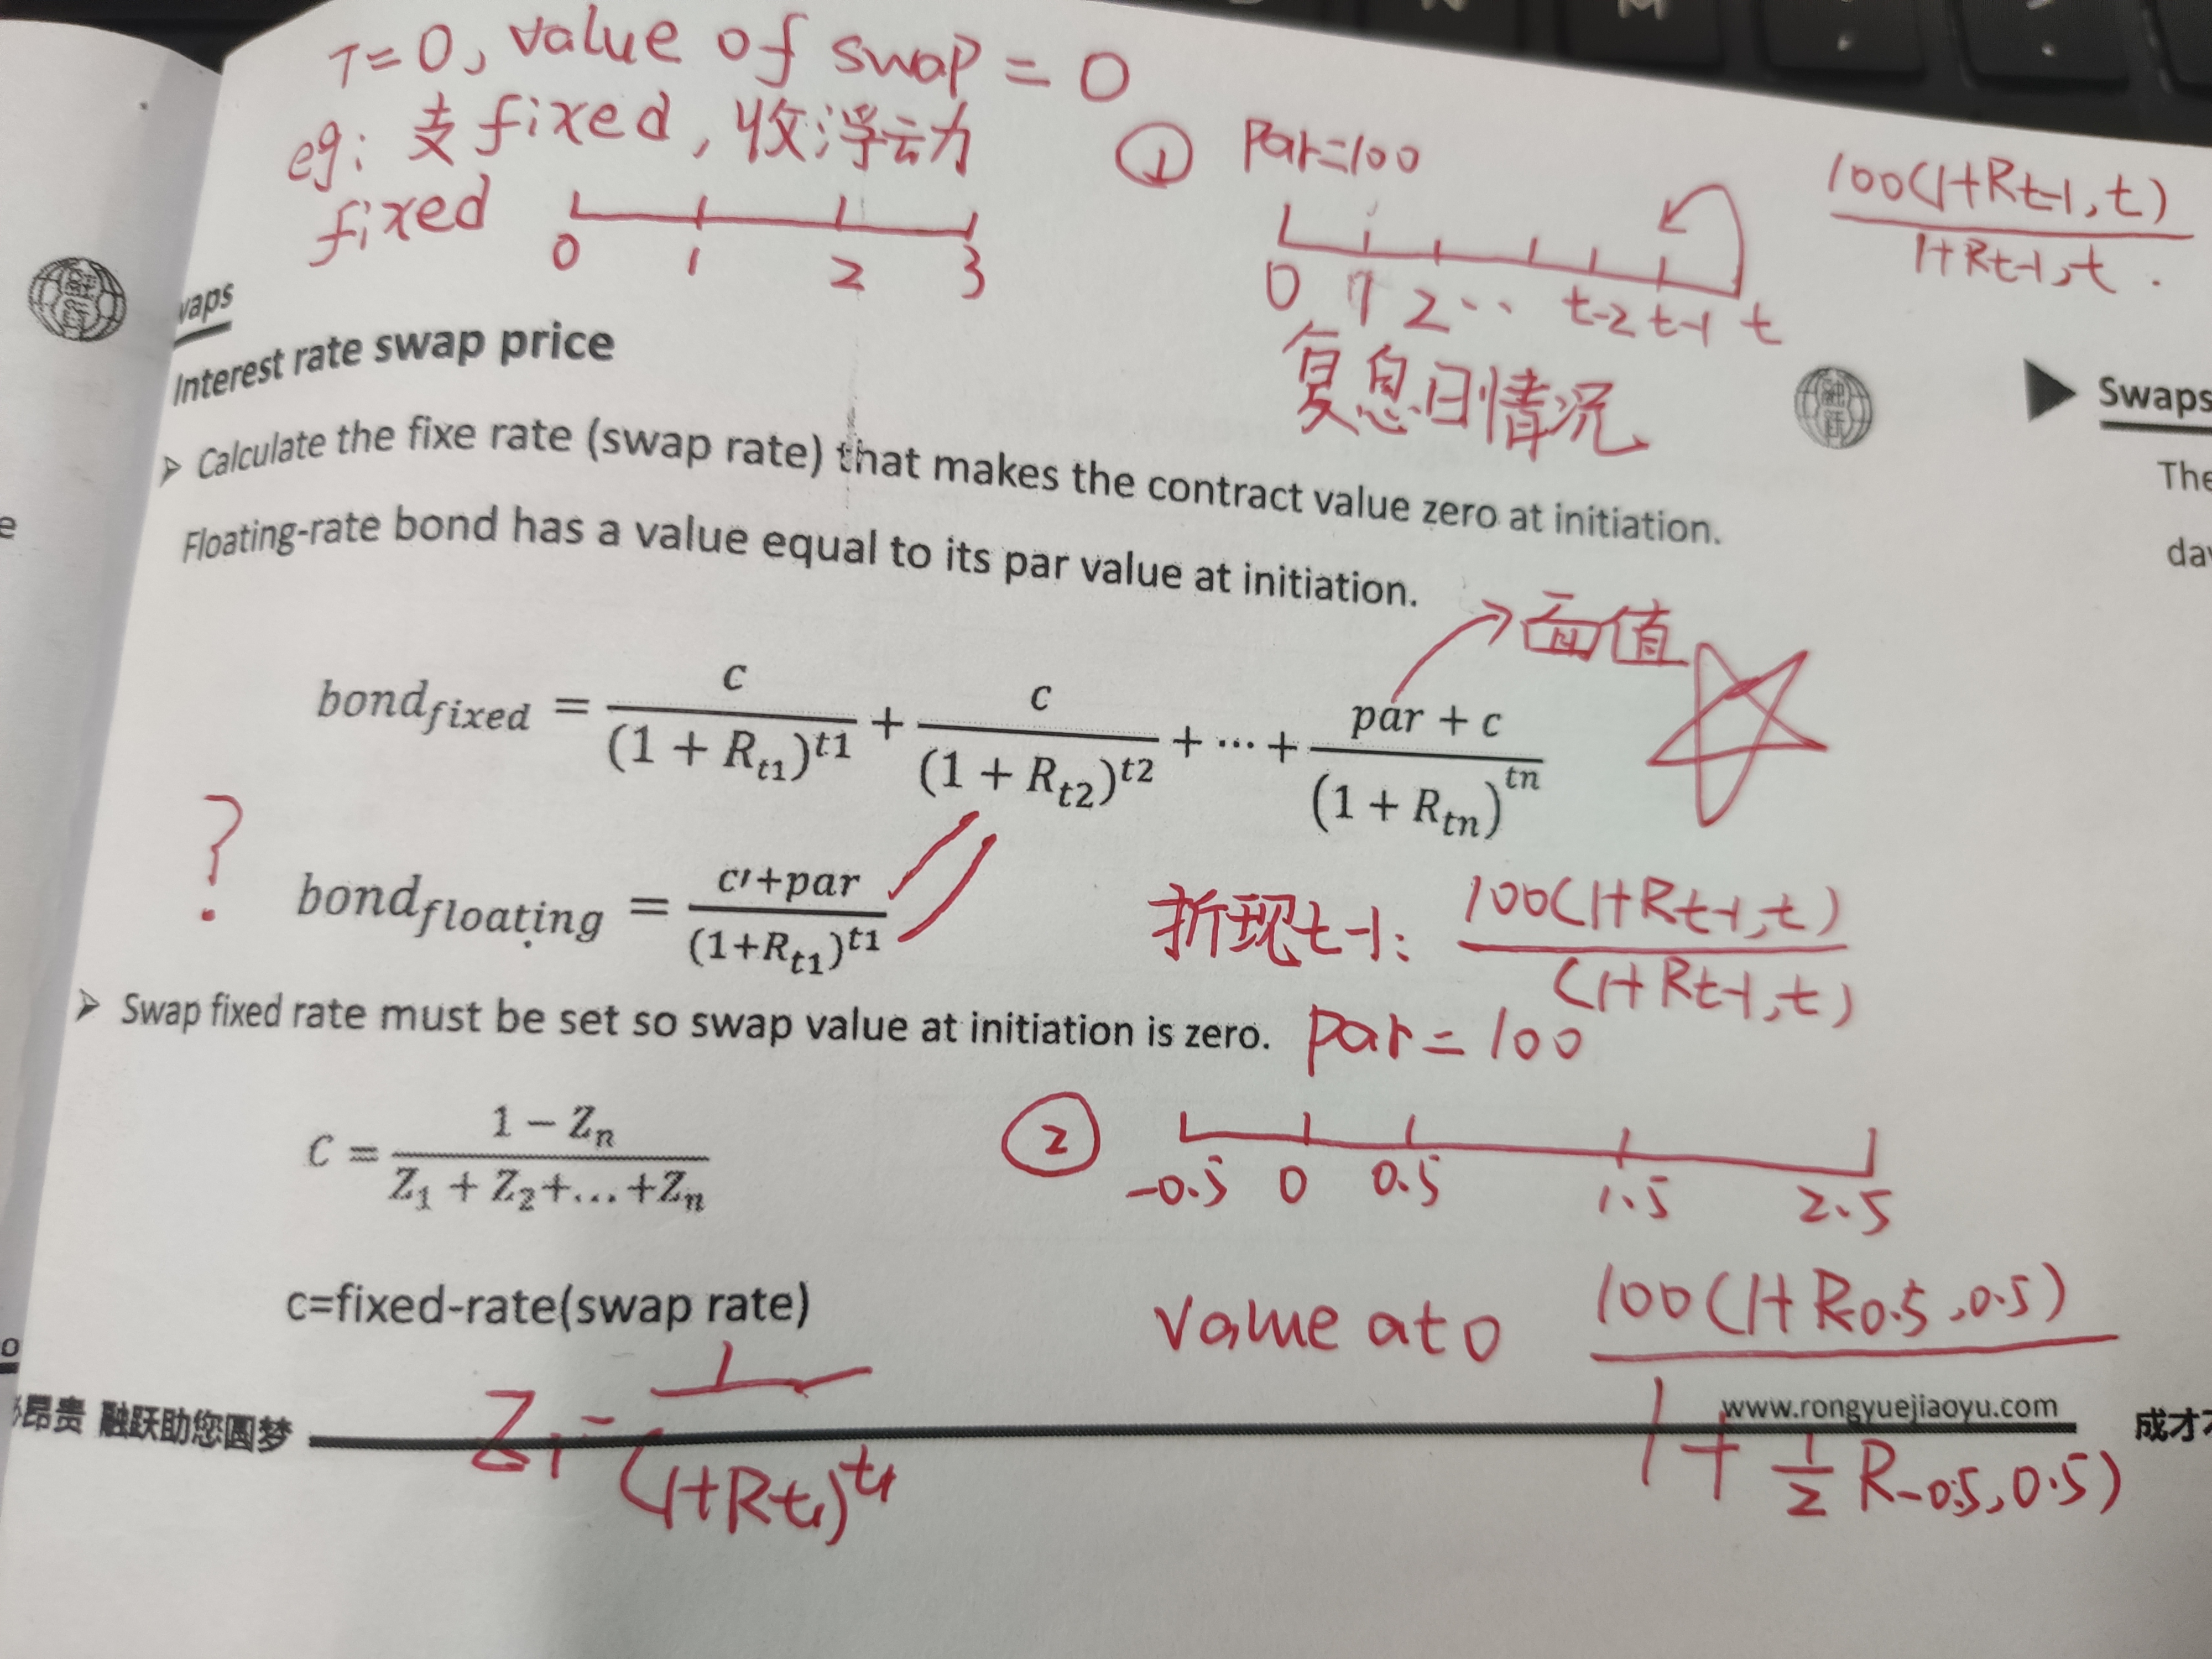 T=0, value of swap = 0
eg: 支 fixed, 收浮动
fixed 0 1 2 3
① Par=100
0 1 2 ·· t-2 t-1 t
100(1+Rt-1, t)
1+Rt-1, t .
复息日情况
waps
Interest rate swap price
➢ Calculate the fixe rate (swap rate) that makes the contract value zero at initiation.
Floating-rate bond has a value equal to its par value at initiation.
面值
bond_fixed = c/(1 + R_t1)^t1 + c/(1 + R_t2)^t2 + ⋯ + (par + c)/(1 + R_tn)^tn
? bond_floating = (c′+par)/(1+R_t1)^t1
折现t-1: 100(1+Rt-1, t)
(1+Rt-1, t)
➢ Swap fixed rate must be set so swap value at initiation is zero.
par = 100
C = (1 − Z_n)/(Z_1 + Z_2+…+Z_n)
② -0.5 0 0.5 1.5 2.5
c=fixed-rate(swap rate)
value at 0 100(1+R-0.5, 0.5)
1 + ½ R-0.5, 0.5)
Z1 = 1/(1+Rt1)^t1
昂贵 融跃助您圆梦
www.rongyuejiaoyu.com
成才
Swaps
The
融跃
融跃
e